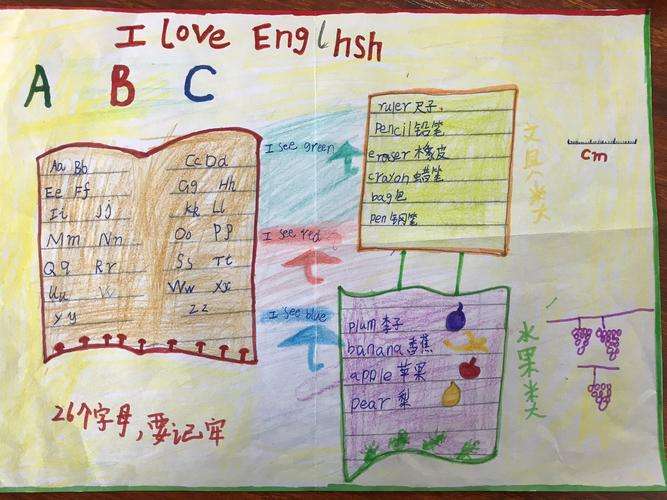 I love Englhsh
A B C
Aa Bb Cc Dd
Ee Ff Gg Hh
Ii Jj Kk Ll
Mm Nn Oo Pp
Qq Rr Ss Tt
Uu Ww Xx
Yy Zz
I see green
I see red
I see blue
ruler 尺子.
Pencil 铅笔
eraser 橡皮
crayon 蜡笔
bag 包
pen 钢笔
文具类
cm
plum 李子
banana 香蕉
apple 苹果
pear 梨
水果类
26个字母,要记牢